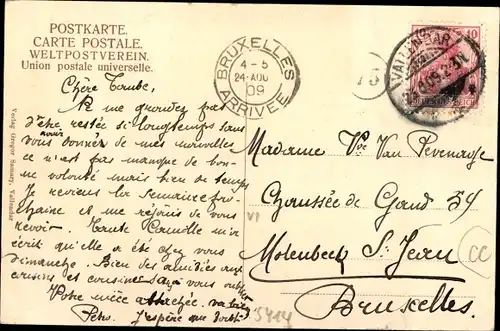 POSTKARTE.
CARTE POSTALE.
WELTPOSTVEREIN.
Union postale universelle.
BRUXELLES
4-5
24 AOU
09
ARRIVEE
10
VALLENDAR
Chère Tante,
Ne me grondez pas
d'être restée si longtemps sans
vous avoir donner de mes nouvelles
ce n'est pas manque de bon-
ne volonté mais bien de temps
Je reviens la semaine pro-
chaine et me réjouis de vous
revoir. Tante Camille m'a
écrit qu'elle a été chez vous
dimanche. Bien des amitiés aux
cousins et cousines sans vous oublier
Votre nièce attachée
J'espère que
Madame Vve Van Pevenage
Chaussée de Gand 54
Molenbeek St Jean
Bruxelles.
VI
CC
Verlag Gregor Samary, Vallendar